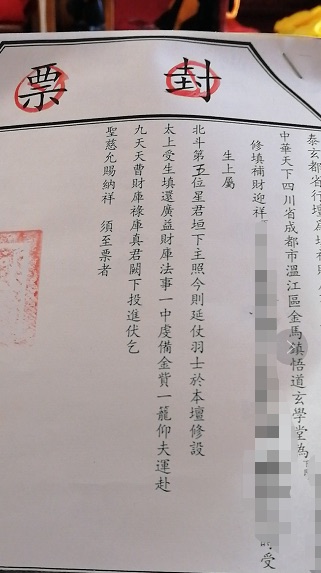 封票
泰玄都省行壇為
中華天下四川省成都市溫江區金馬鎮悟道玄學堂為
修填補財迎祥 受
生上屬
北斗第五位星君垣下主照今則延仗羽士於本壇修設
太上受生填還廣益財庫法事一中虔備金貲一籠仰夫運赴
九天天曹財庫祿庫真君闕下投進伏乞
聖慈允賜納祥 須至票者